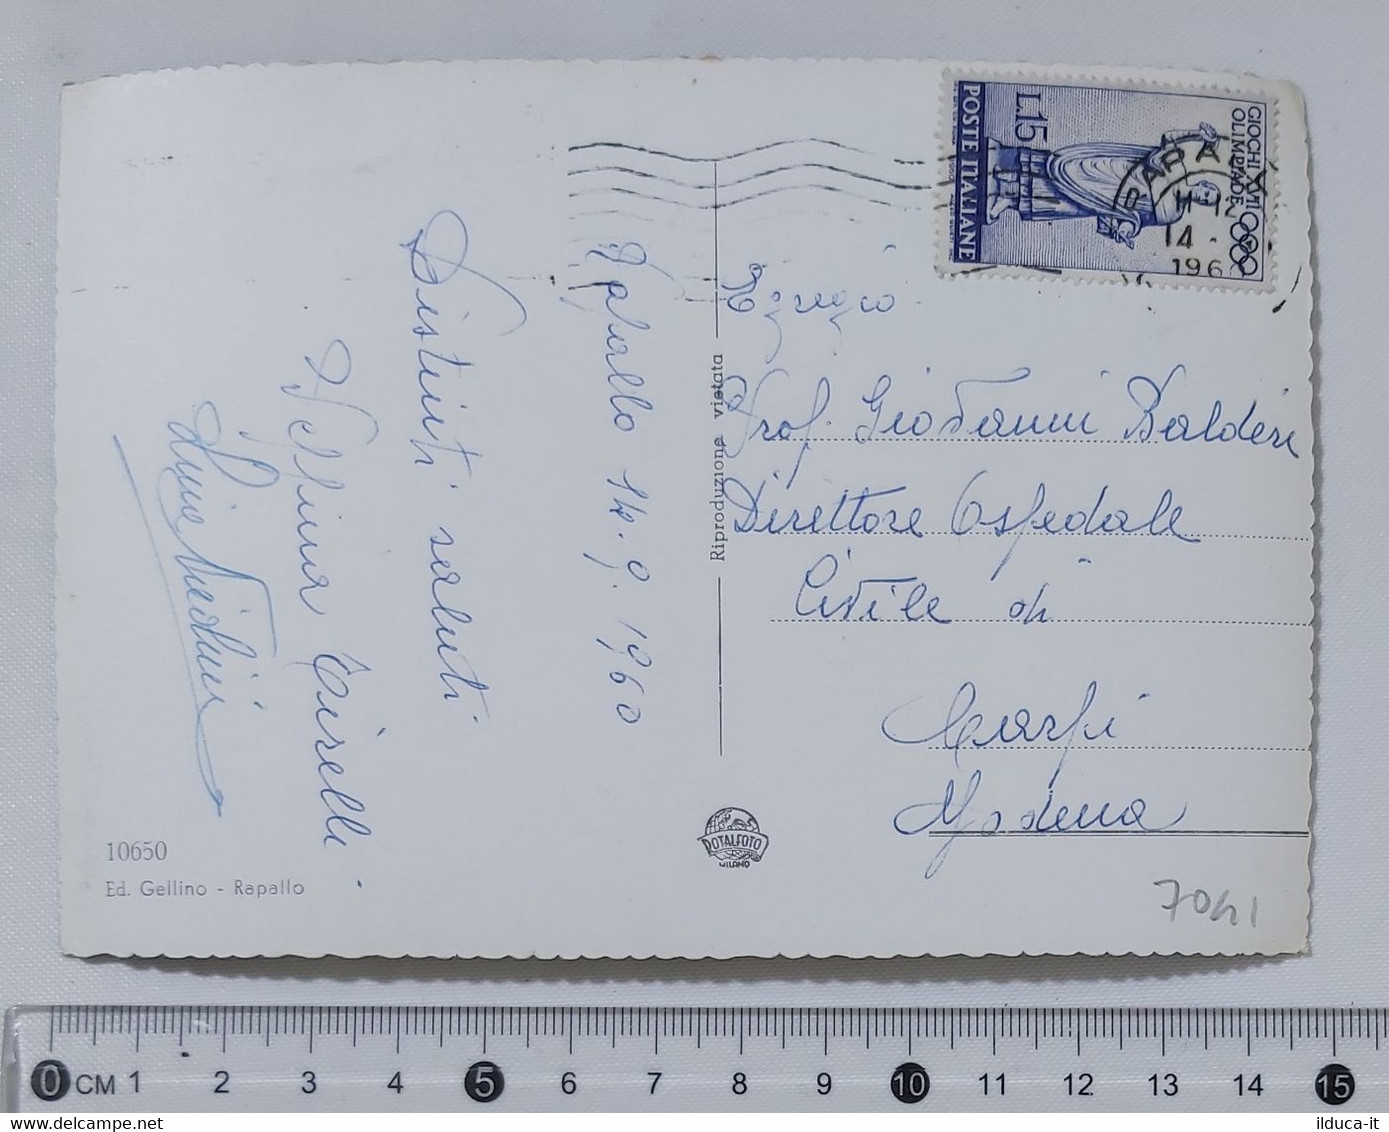 Rapallo 14.9.1960
Distinti saluti
Velluna Cirelli
GIOCHI XVII
OLIMPIADE
L.15
POSTE ITALIANE
RAPALLO
11-12
14.
196
Egregio
Prof. Giovanni Balderi
Direttore Ospedale
Civile di
Carpi
Modena
Riproduzione vietata
ROTALFOTO
MILANO
10650
Ed. Gellino - Rapallo
7041
0 CM 1 2 3 4 5 6 7 8 9 10 11 12 13 14 15
ilduca-it